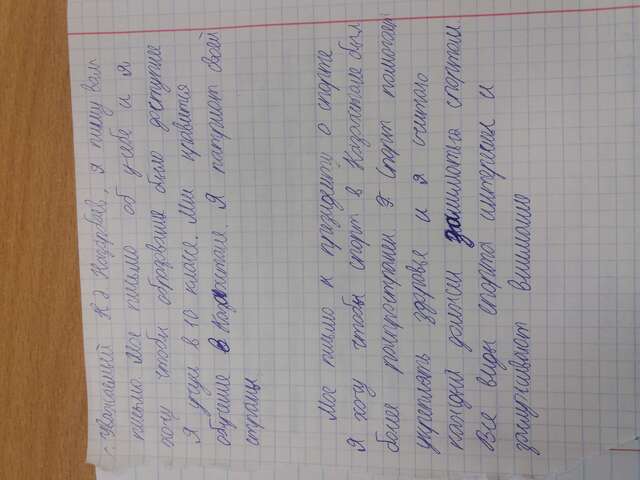 Уважаемый Н Э Назарбаев, я пишу вам
письмо. Мое письмо об учебе и я
хочу чтобы образование было доступнее
Я учусь в 10 классе. Мне нравится
обучение в Казахстане. Я патриот своей
страны
Мое письмо к президенту о спорте
Я хочу чтобы спорт в Казахстане был
более распространен. Спорт помогает
укреплять здоровье и я считаю
каждый должен заниматься спортом.
Все виды спорта интересны и
заслуживают внимание